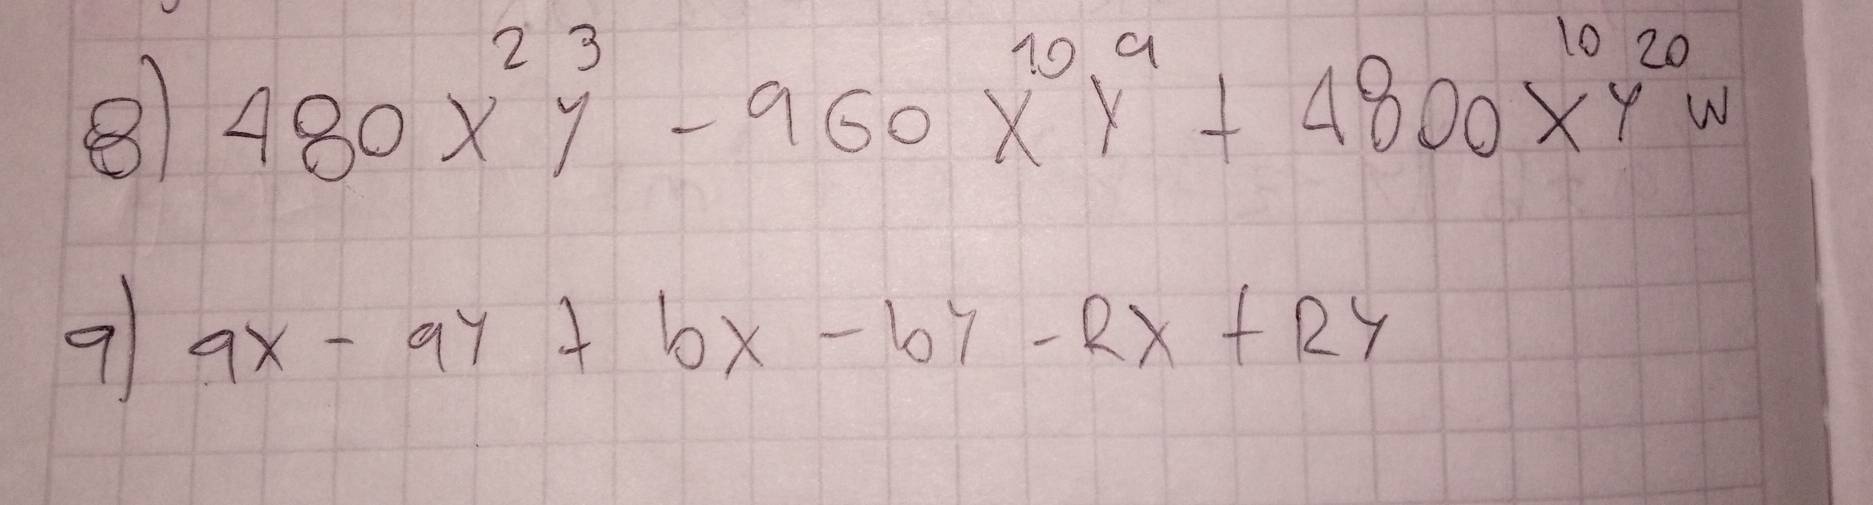 8) 480x²y³ - 960x¹⁰y⁹ + 4800x¹⁰y²⁰w
9) ax - ay + bx - by - Rx + Ry